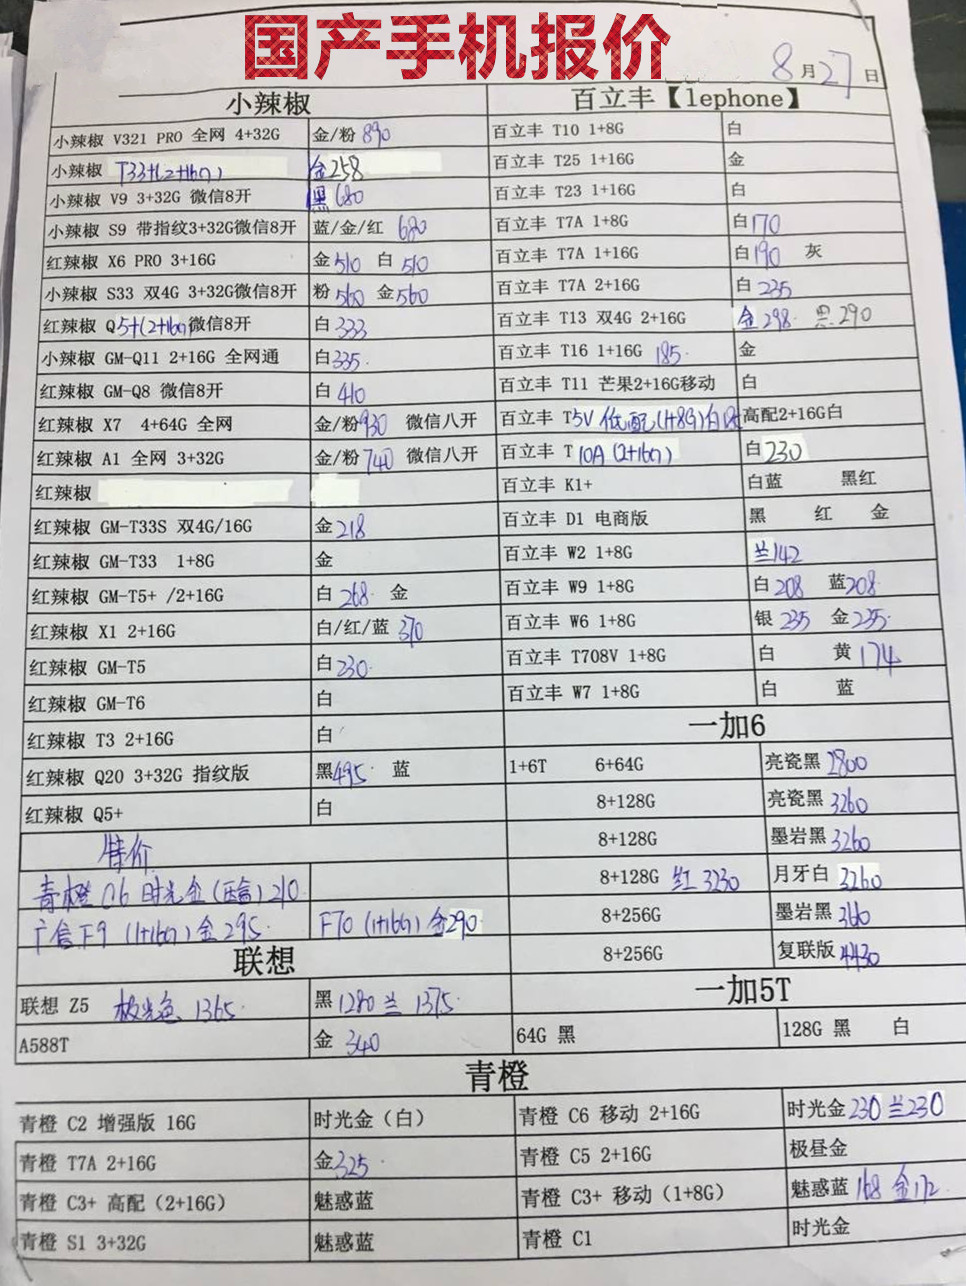 国产手机报价
8月27日
小辣椒
小辣椒 V321 PRO 全网 4+32G 金/粉 890
小辣椒 T33+(2+16G) 金258
小辣椒 V9 3+32G 微信8开 黑 680
小辣椒 S9 带指纹3+32G微信8开 蓝/金/红 680
红辣椒 X6 PRO 3+16G 金510 白510
小辣椒 S33 双4G 3+32G微信8开 粉 560 金560
红辣椒 Q5+(2+16G)微信8开 白333
小辣椒 GM-Q11 2+16G 全网通 白335.
红辣椒 GM-Q8 微信8开 白 410
红辣椒 X7 4+64G 全网 金/粉930 微信八开
红辣椒 A1 全网 3+32G 金/粉 740 微信八开
红辣椒
红辣椒 GM-T33S 双4G/16G 金218
红辣椒 GM-T33 1+8G 金
红辣椒 GM-T5+ /2+16G 白 268. 金
红辣椒 X1 2+16G 白/红/蓝 370
红辣椒 GM-T5 白230.
红辣椒 GM-T6 白
红辣椒 T3 2+16G 白
红辣椒 Q20 3+32G 指纹版 黑495. 蓝
红辣椒 Q5+ 白
特价
青橙 C6 时光金(盒)210
广信F9 (1+16G)金295. F70 (1+16G)金290.
联想
联想 Z5 极光色 1365. 黑1280 兰 1375.
A588T 金 340
百立丰【lephone】
百立丰 T10 1+8G 白
百立丰 T25 1+16G 金
百立丰 T23 1+16G 白
百立丰 T7A 1+8G 白170
百立丰 T7A 1+16G 白190 灰
百立丰 T7A 2+16G 白 235
百立丰 T13 双4G 2+16G 金298. 黑290
百立丰 T16 1+16G 185. 金
百立丰 T11 芒果2+16G移动 白
百立丰 T5V 低配(1+8G)白 高配2+16G白
百立丰 T10A (2+16G) 白230
百立丰 K1+ 白蓝 黑红
百立丰 D1 电商版 黑 红 金
百立丰 W2 1+8G 兰142
百立丰 W9 1+8G 白208 蓝208.
百立丰 W6 1+8G 银 235 金235.
百立丰 T708V 1+8G 白 黄174
百立丰 W7 1+8G 白 蓝
一加6
1+6T 6+64G 亮瓷黑2800
8+128G 亮瓷黑3260
8+128G 墨岩黑3260
8+128G 红3230 月牙白3260
8+256G 墨岩黑3660
8+256G 复联版4430
一加5T
64G 黑 128G 黑 白
青橙
青橙 C2 增强版 16G 时光金（白） 青橙 C6 移动 2+16G 时光金230 兰230
青橙 T7A 2+16G 金325. 青橙 C5 2+16G 极昼金
青橙 C3+ 高配（2+16G） 魅惑蓝 青橙 C3+ 移动（1+8G） 魅惑蓝 168 金172.
青橙 S1 3+32G 魅惑蓝 青橙 C1 时光金